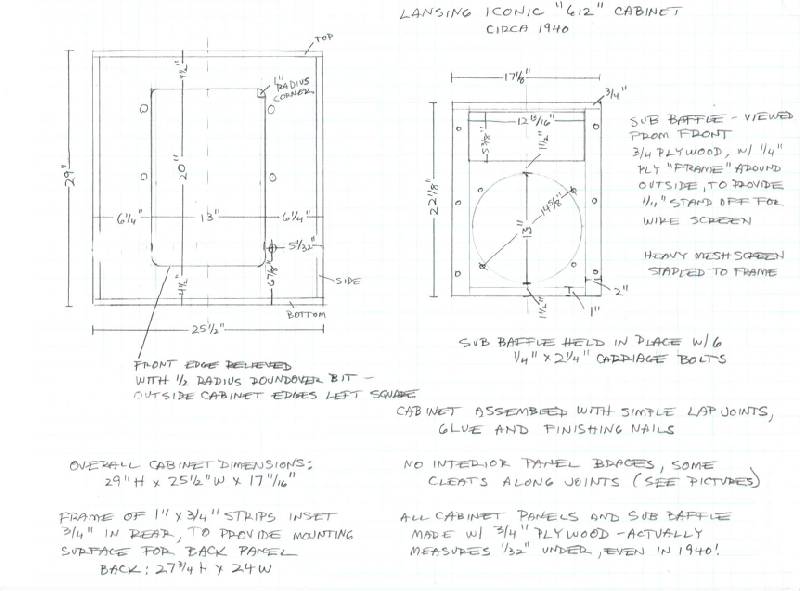 LANSING ICONIC "612" CABINET
CIRCA 1940
TOP
1" RADIUS CORNER
4 1/2"
20"
29"
6 1/4"
13"
6 1/4"
5 1/32"
6 7/8"
4 1/2"
SIDE
BOTTOM
25 1/2"
17 7/8"
3/4"
12 13/16"
5 3/8"
1 1/2"
22 1/8"
14 5/8"
13"
1 1/2"
2"
1"
SUB BAFFLE - VIEWED
FROM FRONT
3/4 PLYWOOD, W/ 1/4"
PLY "FRAME" AROUND
OUTSIDE, TO PROVIDE
STAND OFF FOR
WIRE SCREEN
HEAVY MESH SCREEN
STAPLED TO FRAME
SUB BAFFLE HELD IN PLACE W/ 6
1/4" X 2 1/4" CARRIAGE BOLTS
FRONT EDGE RELIEVED
WITH 1/2 RADIUS ROUNDOVER BIT -
OUTSIDE CABINET EDGES LEFT SQUARE
CABINET ASSEMBED WITH SIMPLE LAP JOINTS,
GLUE AND FINISHING NAILS
OVERALL CABINET DIMENSIONS:
29" H X 25 1/2" W X 17 "/16"
NO INTERIOR PANEL BRACES, SOME
CLEATS ALONG JOINTS (SEE PICTURES)
FRAME OF 1" X 3/4" STRIPS INSET
3/4" IN REAR, TO PROVIDE MOUNTING
SURFACE FOR BACK PANEL
BACK: 27 3/4 H X 24 W
ALL CABINET PANELS AND SUB BAFFLE
MADE W/ 3/4" PLYWOOD - ACTUALLY
MEASURES 1/32" UNDER, EVEN IN 1940!